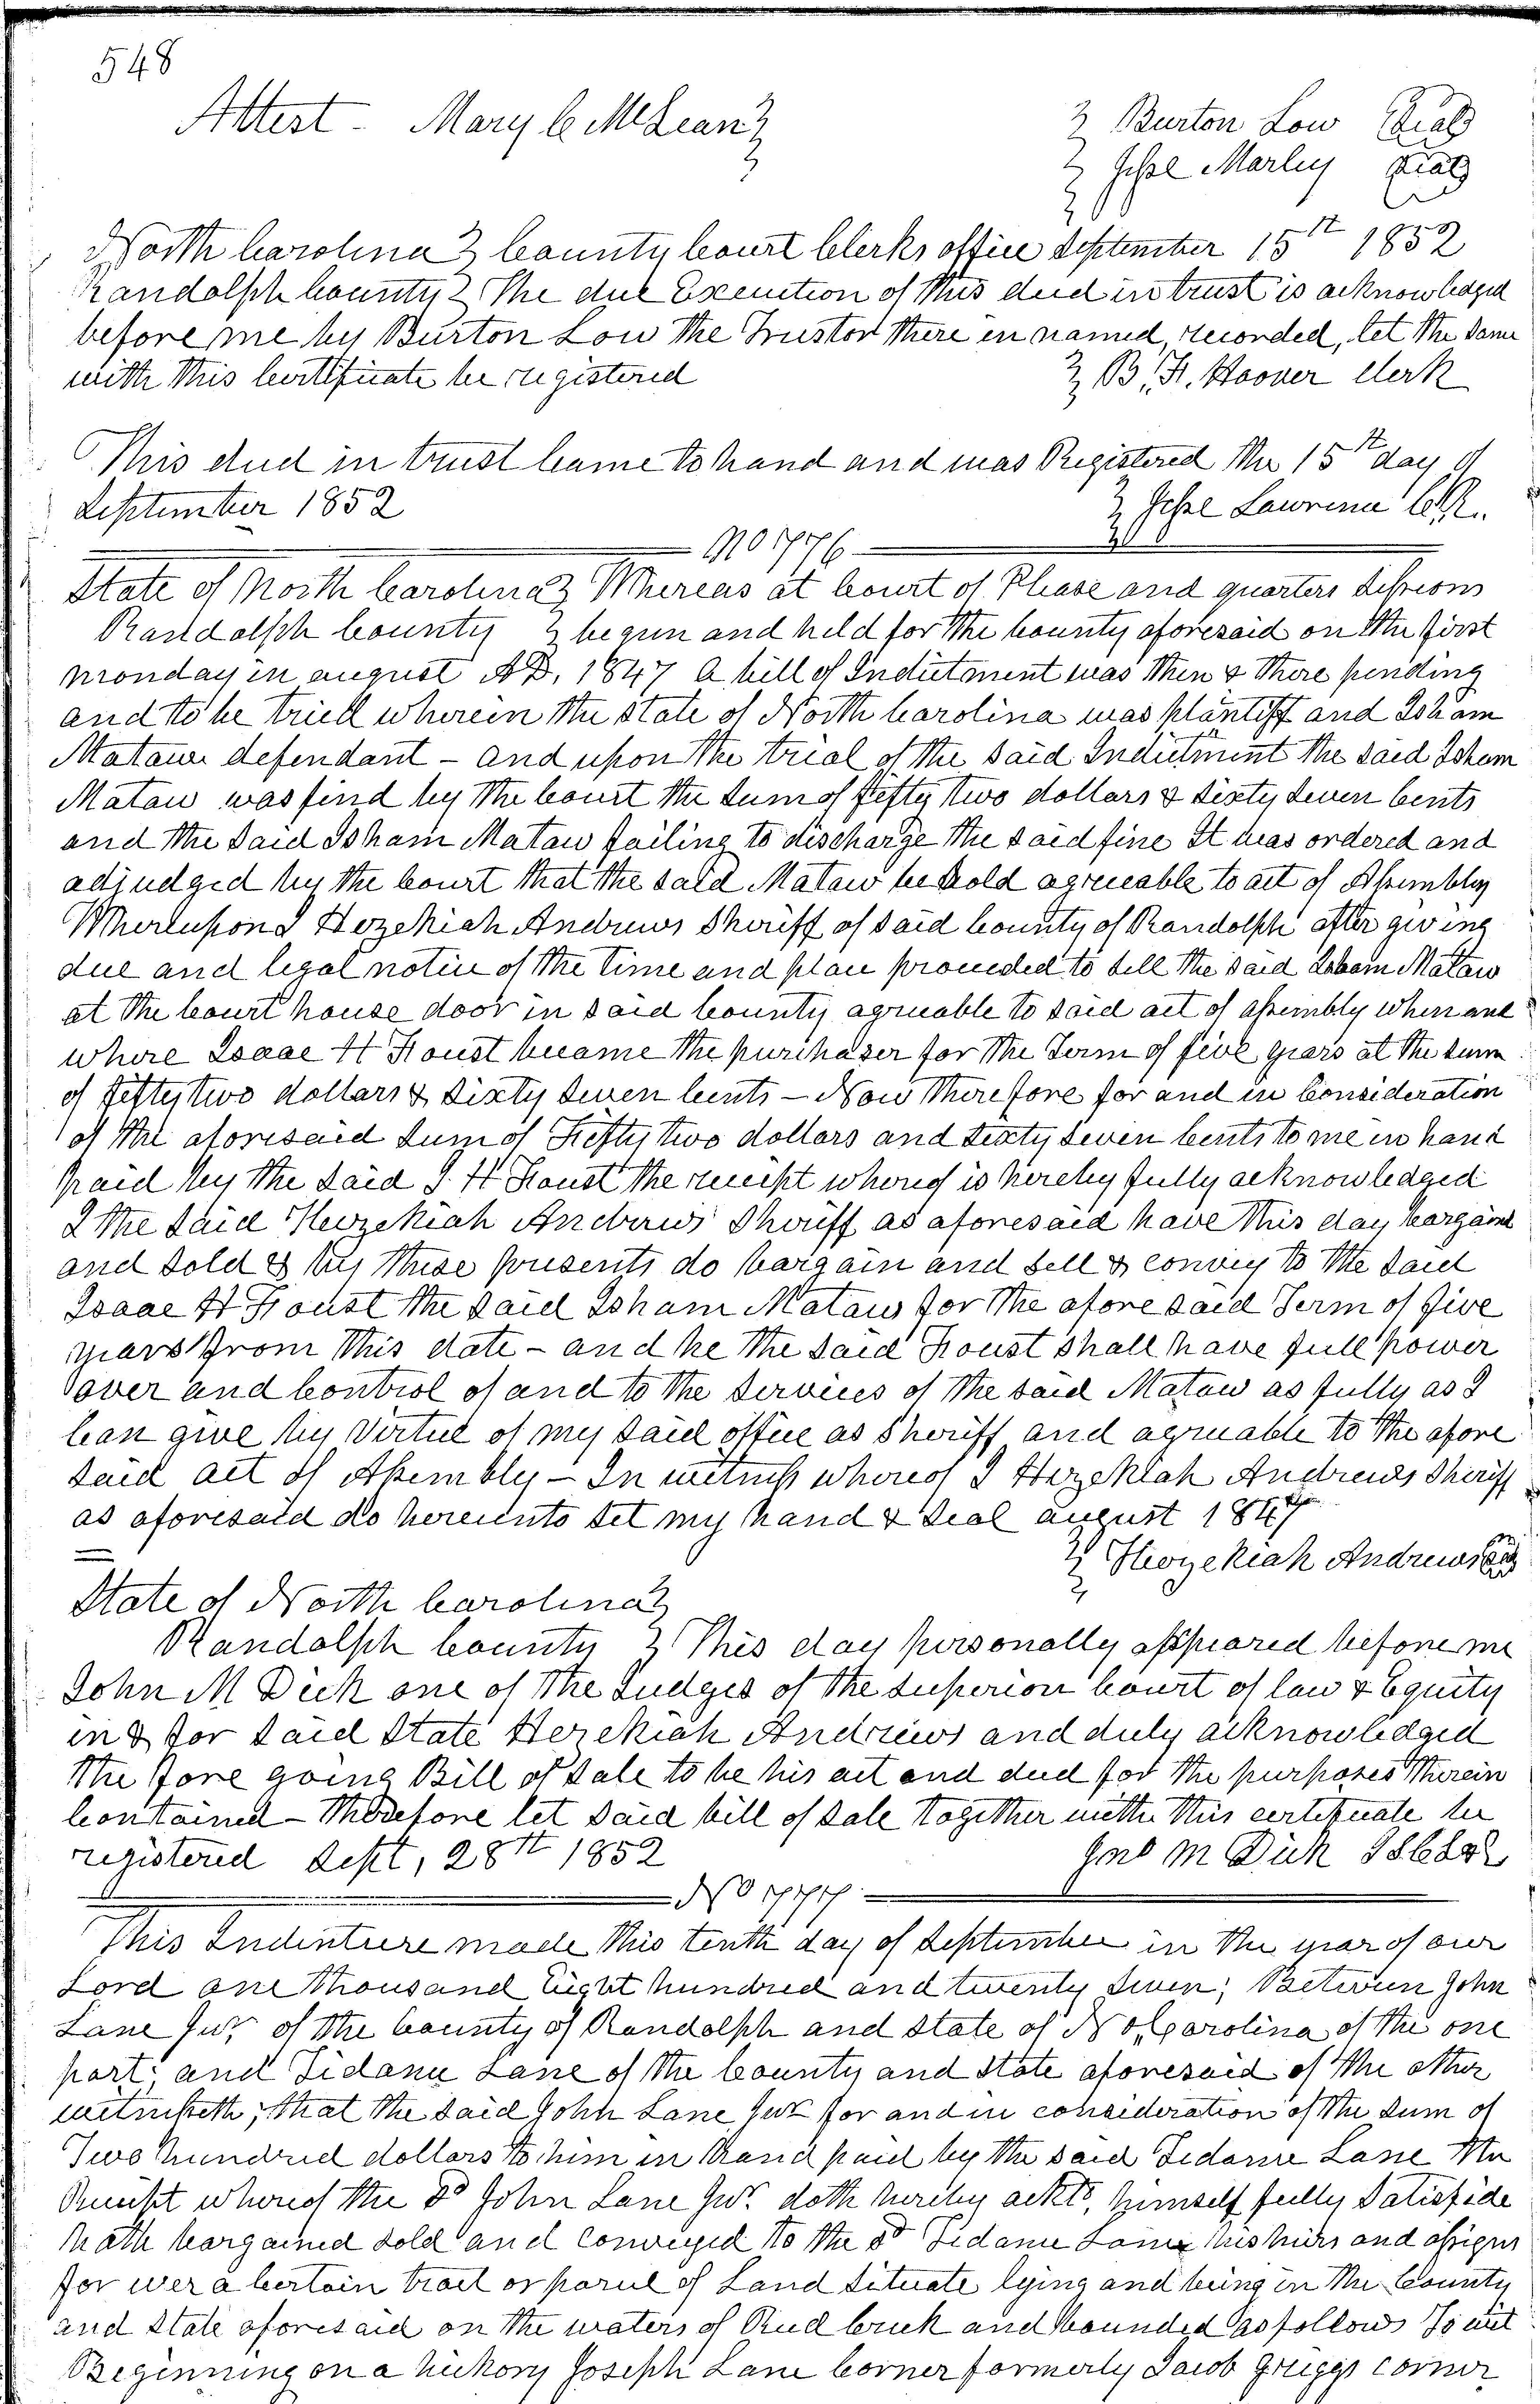 548
Attest - Mary C McLean
Burton Low Seal
Jesse Marley Seal
North Carolina County Court Clerks office September 15th 1852
Randolph County The due Execution of this deed in trust is acknowledged
before me by Burton Low the Trustor there in named, recorded, let the same
with this Certificate be registered
B. F. Hoover Clerk
This deed in trust Came to hand and was Registered the 15th day of
September 1852
Jesse Lawrence C.R.
No 776
State of North Carolina Whereas at Court of Please and quarters Sessions
Randolph County begun and held for the County aforesaid on the first
monday in august A.D. 1847 a bill of Indictment was then & there pending
and to be tried wherein the State of North Carolina was plantiff and Isham
Mataw defendant - and upon the trial of the said Indictment the said Isham
Mataw was find by the Court the sum of fifty two dollars & Sixty Seven Cents
and the said Isham Mataw failing to discharge the said fine It was ordered and
adjudged by the Court that the said Mataw be sold agreeable to act of Assembly
Whereupon I Hezekiah Andrews Sheriff of said County of Randolph after giving
due and legal notice of the time and place proceeded to sell the said Isham Mataw
at the Court house door in said County agreeable to said act of assembly when and
where Isaac H Foust became the purchaser for the Term of five years at the sum
of fifty two dollars & Sixty Seven Cents - Now Therefore for and in Consideration
of the aforesaid sum of Fifty two dollars and Sixty seven Cents to me in hand
paid by the said I. H Foust the receipt whereof is hereby fully acknowledged
I the said Hezekiah Andrews Sheriff as aforesaid have this day bargaind
and sold & by these presents do bargain and sell & convey to the said
Isaac H Foust the said Isham Mataw for the afore said Term of five
years from this date - and he the said Foust shall have full power
over and Control of and to the Services of the said Mataw as fully as I
Can give by Virtue of my said office as Sheriff and agreeable to the afore
said act of Assembly - In witness whereof I Hezekiah Andrews Sheriff
as aforesaid do hereunto set my hand & seal august 1847
Hezekiah Andrews
State of North Carolina
Randolph County This day personally appeared before me
John M Dick one of the Judges of the Superior Court of law & Equity
in & for said State Hezekiah Andrews and duly acknowledged
the fore going Bill of Sale to be his act and deed for the purposes therein
Contained - Therefore let said bill of sale together with this certificate be
registered Sept, 28th 1852
Jno M Dick
No 777
This Indenture made this tenth day of September in the year of our
Lord one thousand Eight hundred and twenty Seven; Between John
Lane Jur of the County of Randolph and State of No, Carolina of the one
part; and Tidance Lane of the County and State aforesaid of the other
witnesseth; that the said John Lane Jur for and in consideration of the sum of
Two hundred dollars to him in hand paid by the said Tidance Lane the
Receipt whereof the sd John Lane Jur. doth hereby ackd, himself fully Satisfide
hath bargained sold and conveyed to the sd Tidance Lane his heirs and assigns
for wer a Certain tract or parcel of Land Situate lying and being in the County
and State aforesaid on the waters of Rud Creek and bounded as follows To wit
Beginning on a hickory Joseph Lane Corner formerly Jacob Griggs Corner